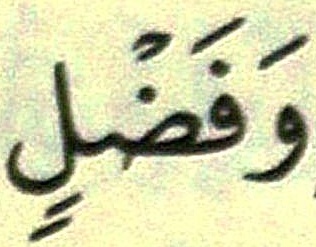 وَفَضْلٍ